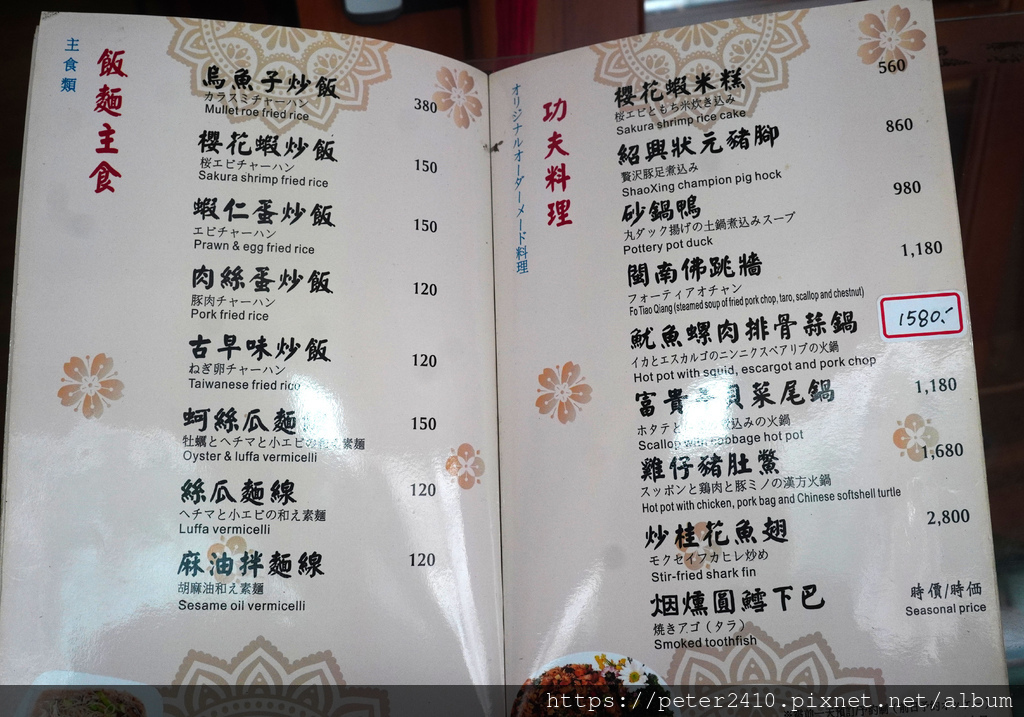 主食類
飯麵主食
烏魚子炒飯
カラスミチャーハン 380
Mullet roe fried rice
櫻花蝦炒飯
桜エビチャーハン 150
Sakura shrimp fried rice
蝦仁蛋炒飯
エビチャーハン 150
Prawn & egg fried rice
肉絲蛋炒飯
豚肉チャーハン 120
Pork fried rice
古早味炒飯
ねぎ卵チャーハン 120
Taiwanese fried rice
蚵絲瓜麵
牡蠣とヘチマと小エビの和え素麺 150
Oyster & luffa vermicelli
絲瓜麵線 120
ヘチマと小エビの和え素麺
Luffa vermicelli
麻油拌麵線 120
胡麻油和え素麺
Sesame oil vermicelli
オリジナルオーダーメード料理
功夫料理
櫻花蝦米糕 560
桜エビともち米炊き込み
Sakura shrimp rice cake
紹興狀元豬腳 860
贅沢豚足煮込み
ShaoXing champion pig hock
砂鍋鴨 980
丸ダック揚げの土鍋煮込みスープ
Pottery pot duck
閩南佛跳牆 1,180
フォーティアオチャン
Fo Tiao Qiang (steamed soup of fried pork chop, taro, scallop and chestnut)
魷魚螺肉排骨蒜鍋 1580.-
イカとエスカルゴのニンニクスペアリブの火鍋
Hot pot with squid, escargot and pork chop
富貴 貝菜尾鍋 1,180
ホタテと 煮込みの火鍋
Scallop with cabbage hot pot
雞仔豬肚鱉 1,680
スッポンと鶏肉と豚ミノの漢方火鍋
Hot pot with chicken, pork bag and Chinese softshell turtle
炒桂花魚翅 2,800
モクセイフカヒレ炒め
Stir-fried shark fin
烟燻圓鱈下巴 時價/時価
焼きアゴ（タラ） Seasonal price
Smoked toothfish
https://peter2410.pixnet.net/album